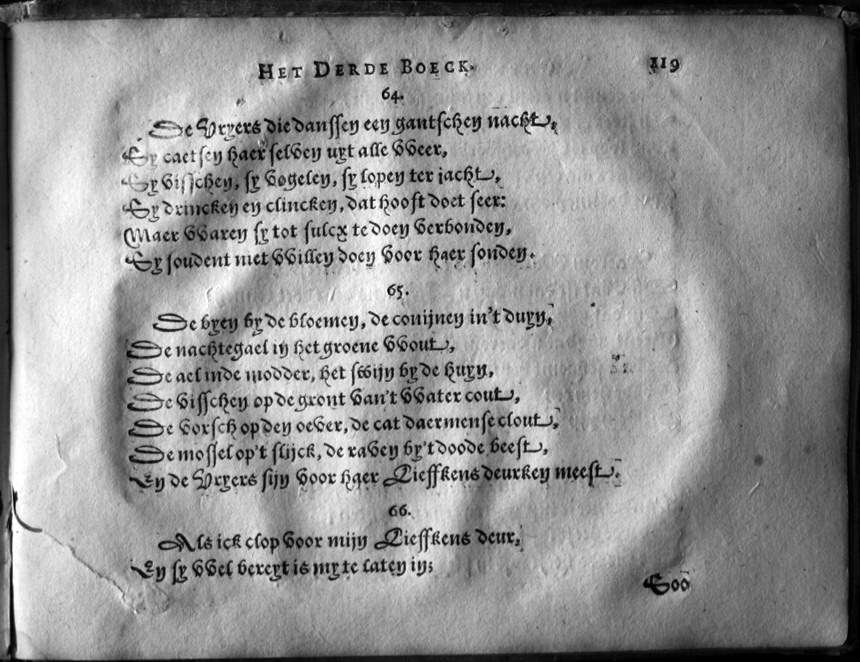 HET DERDE BOECK. 119
64.
De Vryers die danssen een gantschen nacht,
Sy caetsen haer selven uyt alle weer,
Sy visschen, sy vogelen, sy lopen ter jacht,
Sy drincken en clincken, dat hooft doet seer:
Maer waren sy tot sulcx te doen verbonden,
Sy soudent niet willen doen voor haer sonden.
65.
De byen by de bloemen, de conijnen in't duyn,
De nachtegael in het groene wout,
De ael inde modder, het swijn by de huyn,
De visschen op de gront van't water cout,
De vorsch op den oever, de cat daermense clout,
De mossel op't slijck, de raven by't doode beest,
En de Vryers sijn voor haer Lieffkens deurken meest.
66.
Als ick clop voor mijn Lieffkens deur,
En sy wel bereyt is my te laten in;
Soo